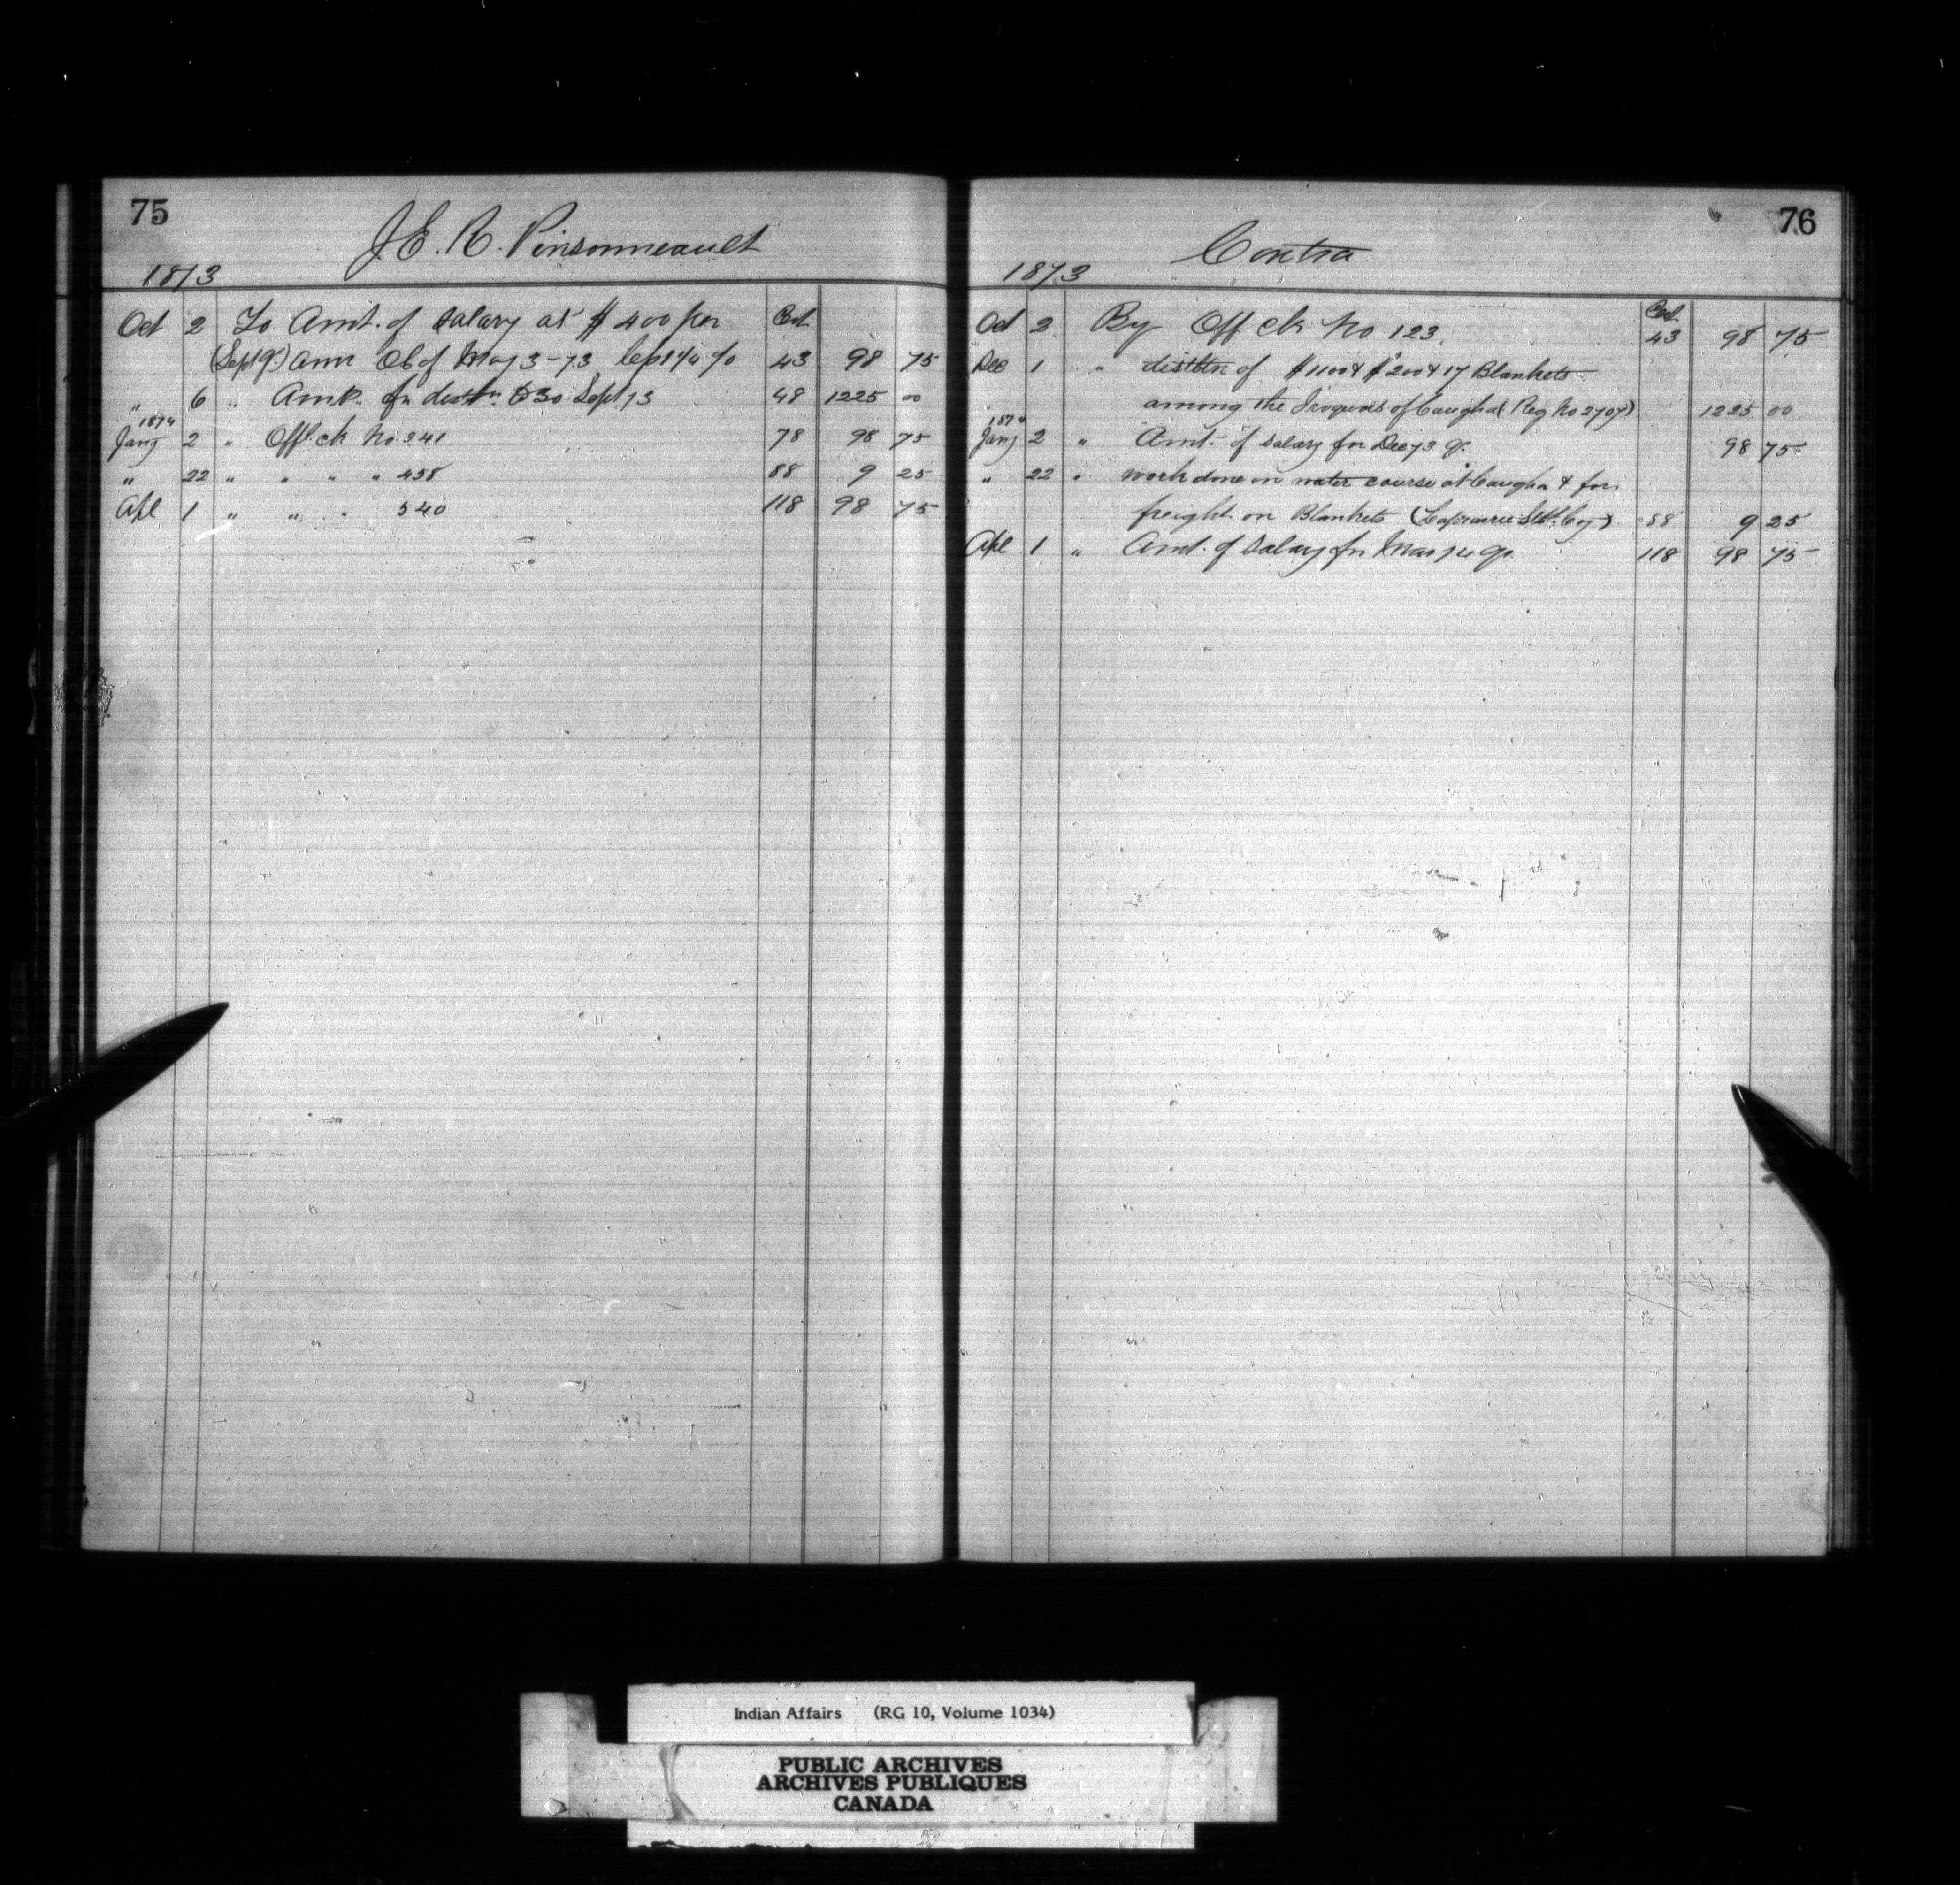 75
J. E. R. Pinsonneault
1873
Oct 2 To Amt. of Salary at $400 per Cert
(Sept qr.) ann O C of May 3-73 less 1¼ % 43 98 75
" 6 " Amt. for distn. 30 Sept 73 48 1225 00
1874
Jany 2 " Offl. ck No. 341 78 98 75
" 22 " " " " 458 88 9 25
Apl 1 " " " 540 118 98 75
76
Contra
1873
Oct 2 By Off ck No 123. Cert 43 98 75
Dec 1 " distbtn of $1100 & $200 & 17 Blankets
among the Iroquois of Caugha (Reg No 2707) 1225 00
1874
Jany 2 " Amt. of salary for Dec 73 qr. 98 75
" 22 " work done on water course at Caugha & for
freight on Blankets (Laprairie Cy) 88 9 25
Apl 1 " Amt. of Salary for Mar 74 qr. 118 98 75
Indian Affairs (RG 10, Volume 1034)
PUBLIC ARCHIVES
ARCHIVES PUBLIQUES
CANADA